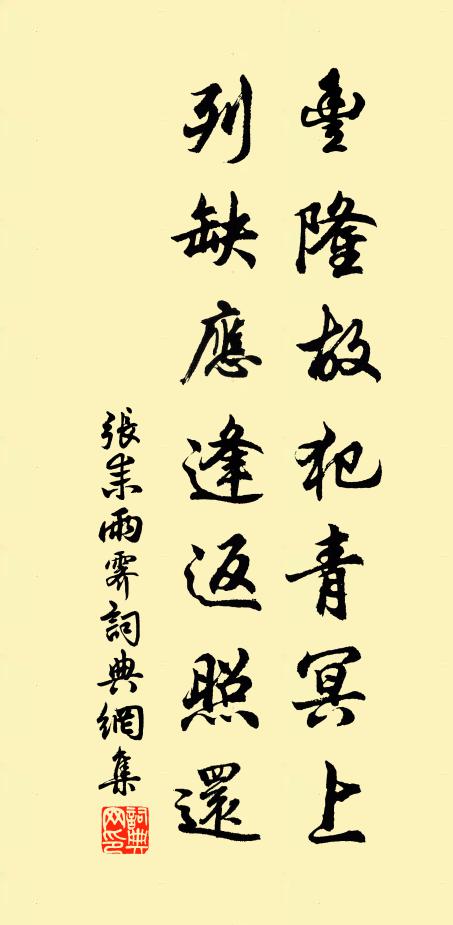 豐隆故犯青冥上
列缺應逢返照還
張耒雨霽詞典網集
詞典網印